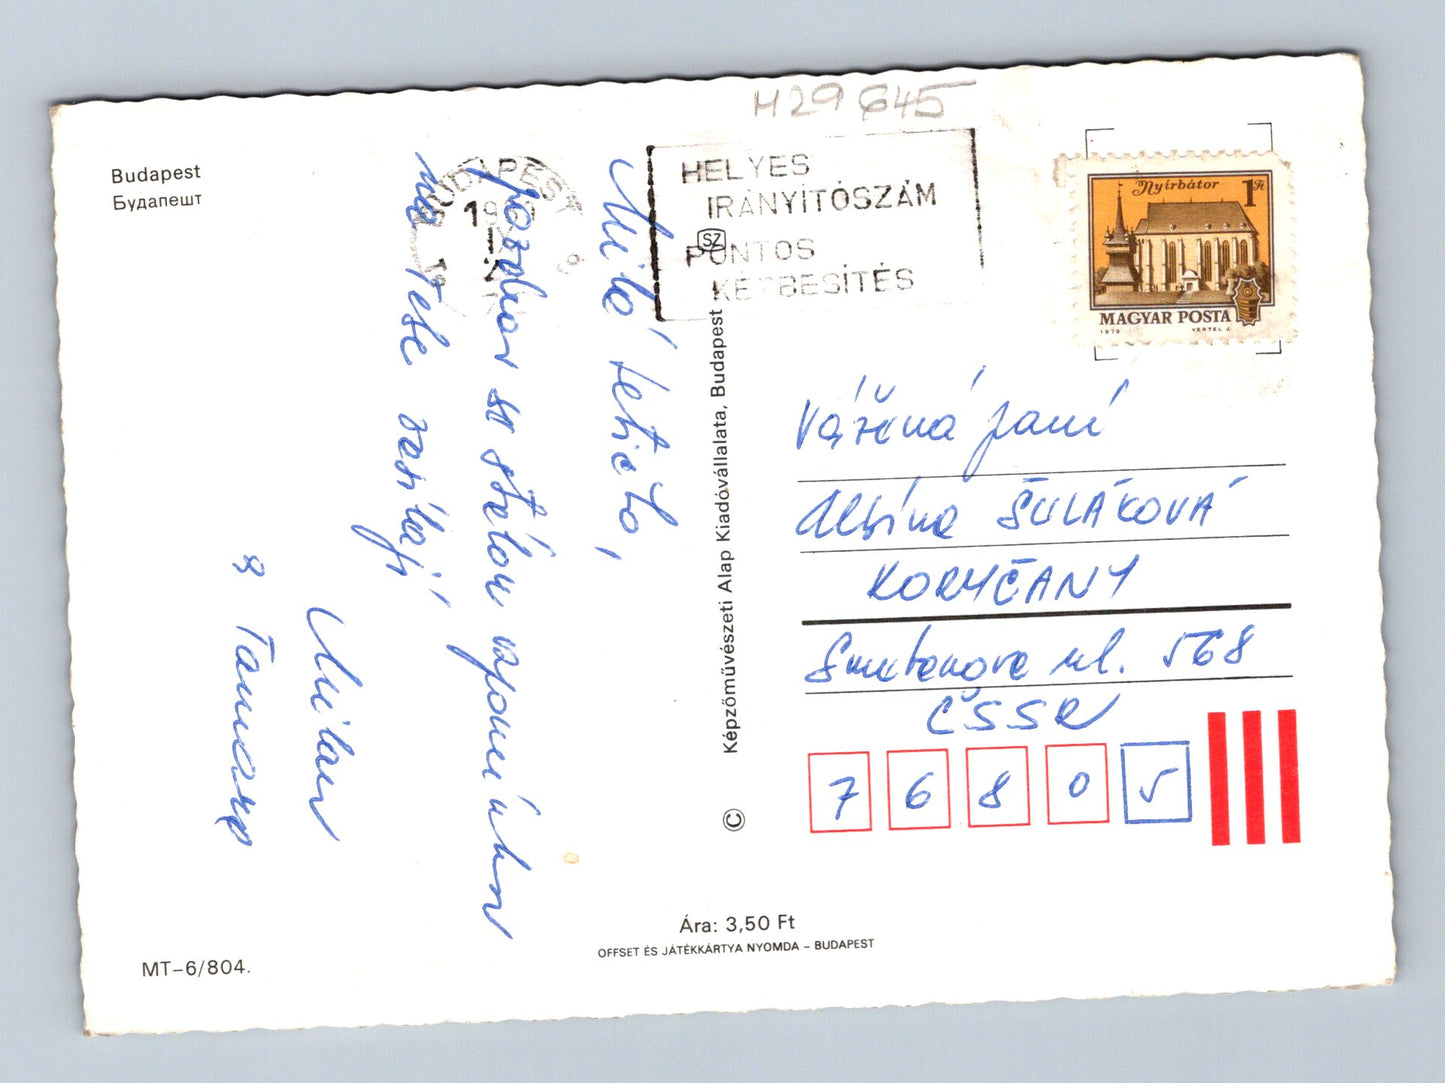 H29645
Budapest
Будапешт
BUDAPEST
HELYES
IRÁNYÍTÓSZÁM
SZ
PONTOS
KÉZBESÍTÉS
Nyírbátor 1 Ft
MAGYAR POSTA
1979 VERTEL J.
Milá tetičko,
pozdrav se srdečnou vzpomínkou
na Tebe zasílají
Milan
Képzőművészeti Alap Kiadóvállalata, Budapest
©
Vážená paní
Albína ŠULÁKOVÁ
KORYČANY
Smetanova ul. 568
ČSSR
7 6 8 0 5
Ára: 3,50 Ft
OFFSET ÉS JÁTÉKKÁRTYA NYOMDA – BUDAPEST
MT–6/804.